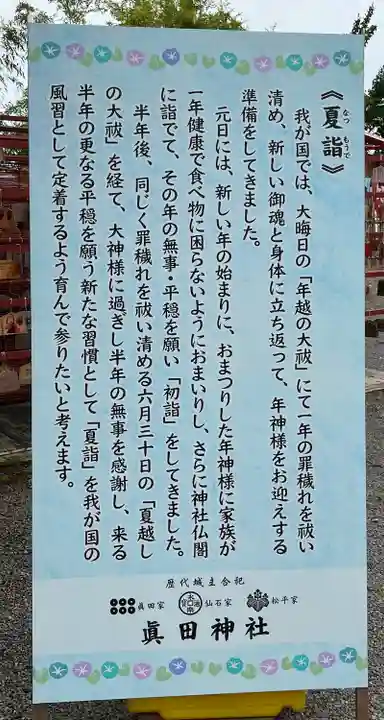 《夏詣》
なつ もうで
我が国では、大晦日の「年越の大祓」にて一年の罪穢れを祓い
清め、新しい御魂と身体に立ち返つて、年神様をお迎えする
準備をしてきました。
元日には、新しい年の始まりに、おまつりした年神様に家族が
一年健康で食べ物に困らないようにおまいりし、さらに神社仏閣
に詣でて、その年の無事・平穏を願い「初詣」をしてきました。
半年後、同じく罪穢れを祓い清める六月三十日の「夏越し
の大祓」を経て、大神様に過ぎし半年の無事を感謝し、来る
半年の更なる平穏を願う新たな習慣として「夏詣」を我が国の
風習として定着するよう育んで参りたいと考えます。
歴代城主合祀
眞田家 仙石家 松平家
眞田神社